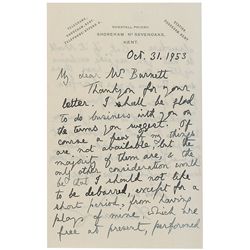 DUNSTALL PRIORY
SHOREHAM Nr SEVENOAKS,
KENT.
Oct. 31. 1953
My dear Mr Barnett
Thank you for your
letter. I shall be glad
to do business with you on
the terms you suggest. Of
course a few of my things
are not available but the
majority of them are, & the
only other consideration would
be that I should not like
to be debarred, except for a
short period, from having
plays of mine, which are
free at present, performed